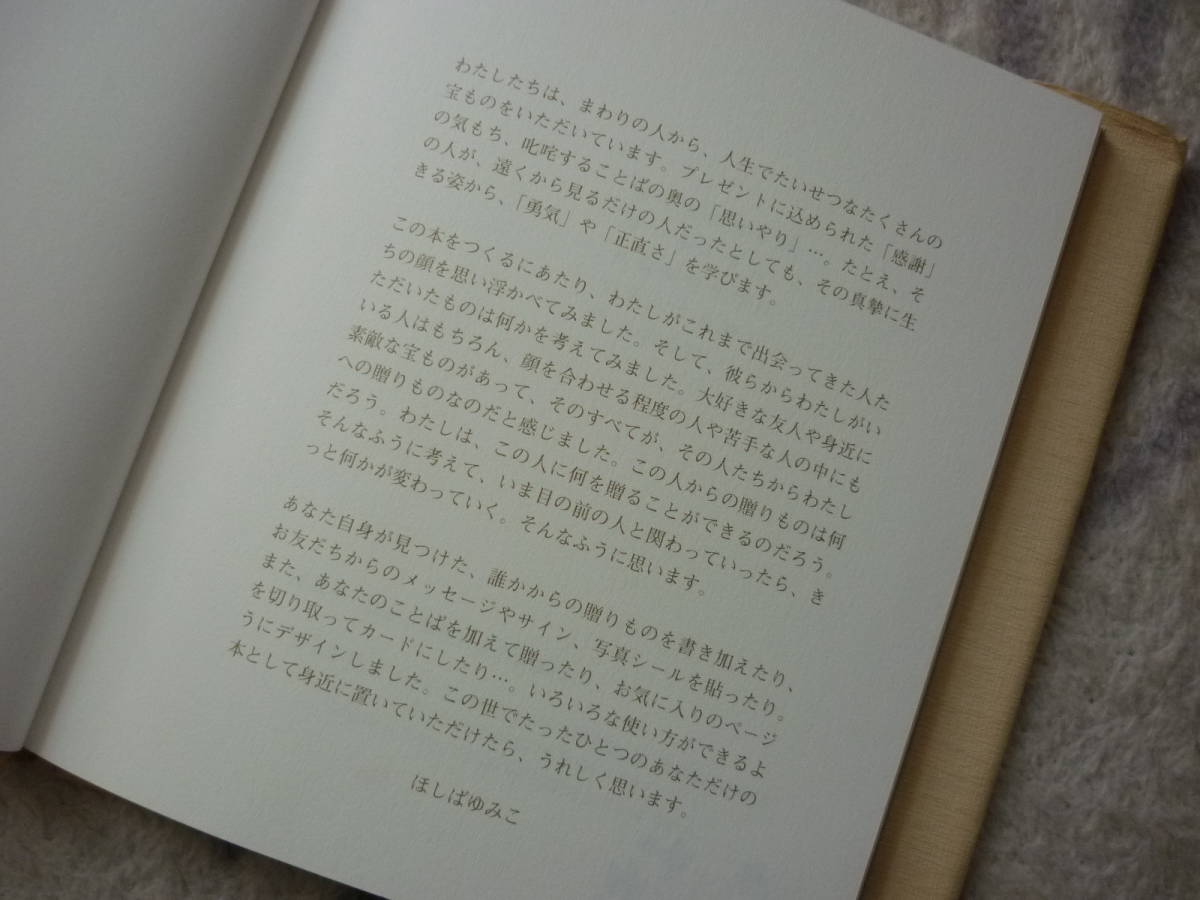 わたしたちは、まわりの人から、人生でたいせつなたくさんの
宝ものをいただいています。プレゼントに込められた「感謝」
の気もち、叱咤することばの奥の「思いやり」…。たとえ、そ
の人が、遠くから見るだけの人だったとしても、その真摯に生
きる姿から、「勇気」や「正直さ」を学びます。
この本をつくるにあたり、わたしがこれまで出会ってきた人た
ちの顔を思い浮かべてみました。そして、彼らからわたしがい
ただいたものは何かを考えてみました。大好きな友人や身近に
いる人はもちろん、顔を合わせる程度の人や苦手な人の中にも
素敵な宝ものがあって、そのすべてが、その人たちからわたし
への贈りものなのだと感じました。この人からの贈りものは何
だろう。わたしは、この人に何を贈ることができるのだろう。
そんなふうに考えて、いま目の前の人と関わっていったら、き
っと何かが変わっていく。そんなふうに思います。
あなた自身が見つけた、誰かからの贈りものを書き加えたり、
お友だちからのメッセージやサイン、写真シールを貼ったり。
また、あなたのことばを加えて贈ったり、お気に入りのページ
を切り取ってカードにしたり…。いろいろな使い方ができるよ
うにデザインしました。この世でたったひとつのあなただけの
本として身近に置いていただけたら、うれしく思います。
ほしばゆみこ